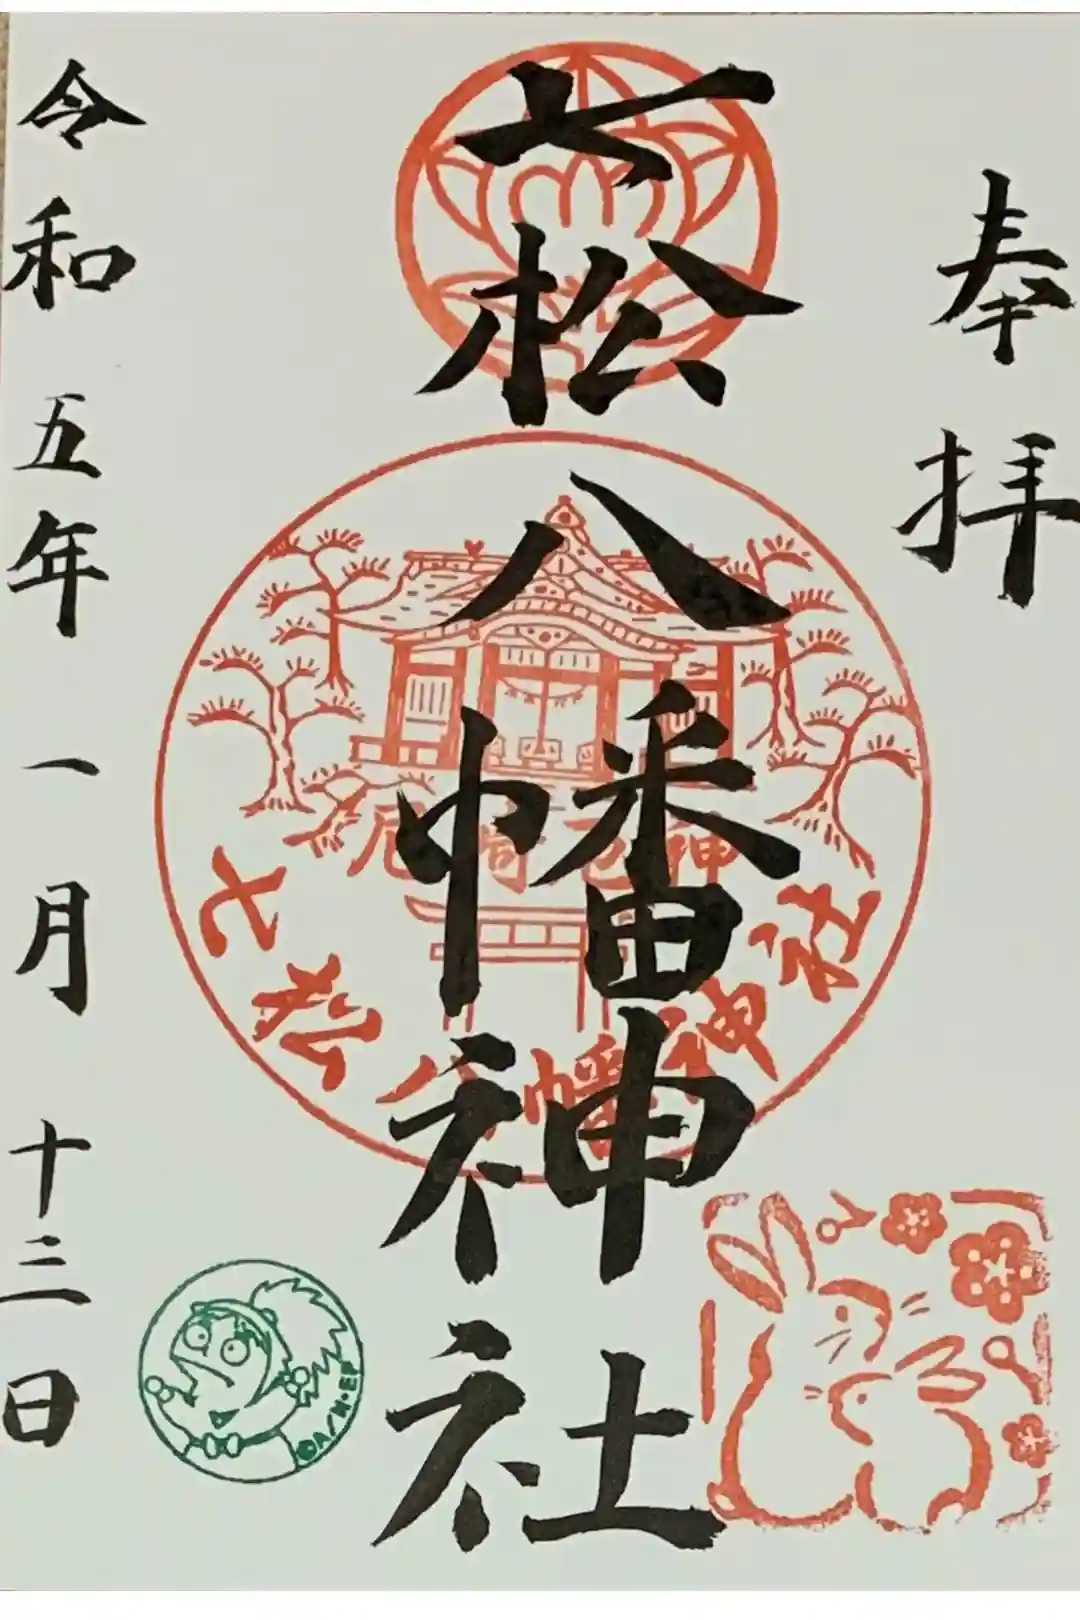 奉拝
七松八幡神社
尼崎厄神
七松八幡神社
令和五年一月十三日
©A/N•EP